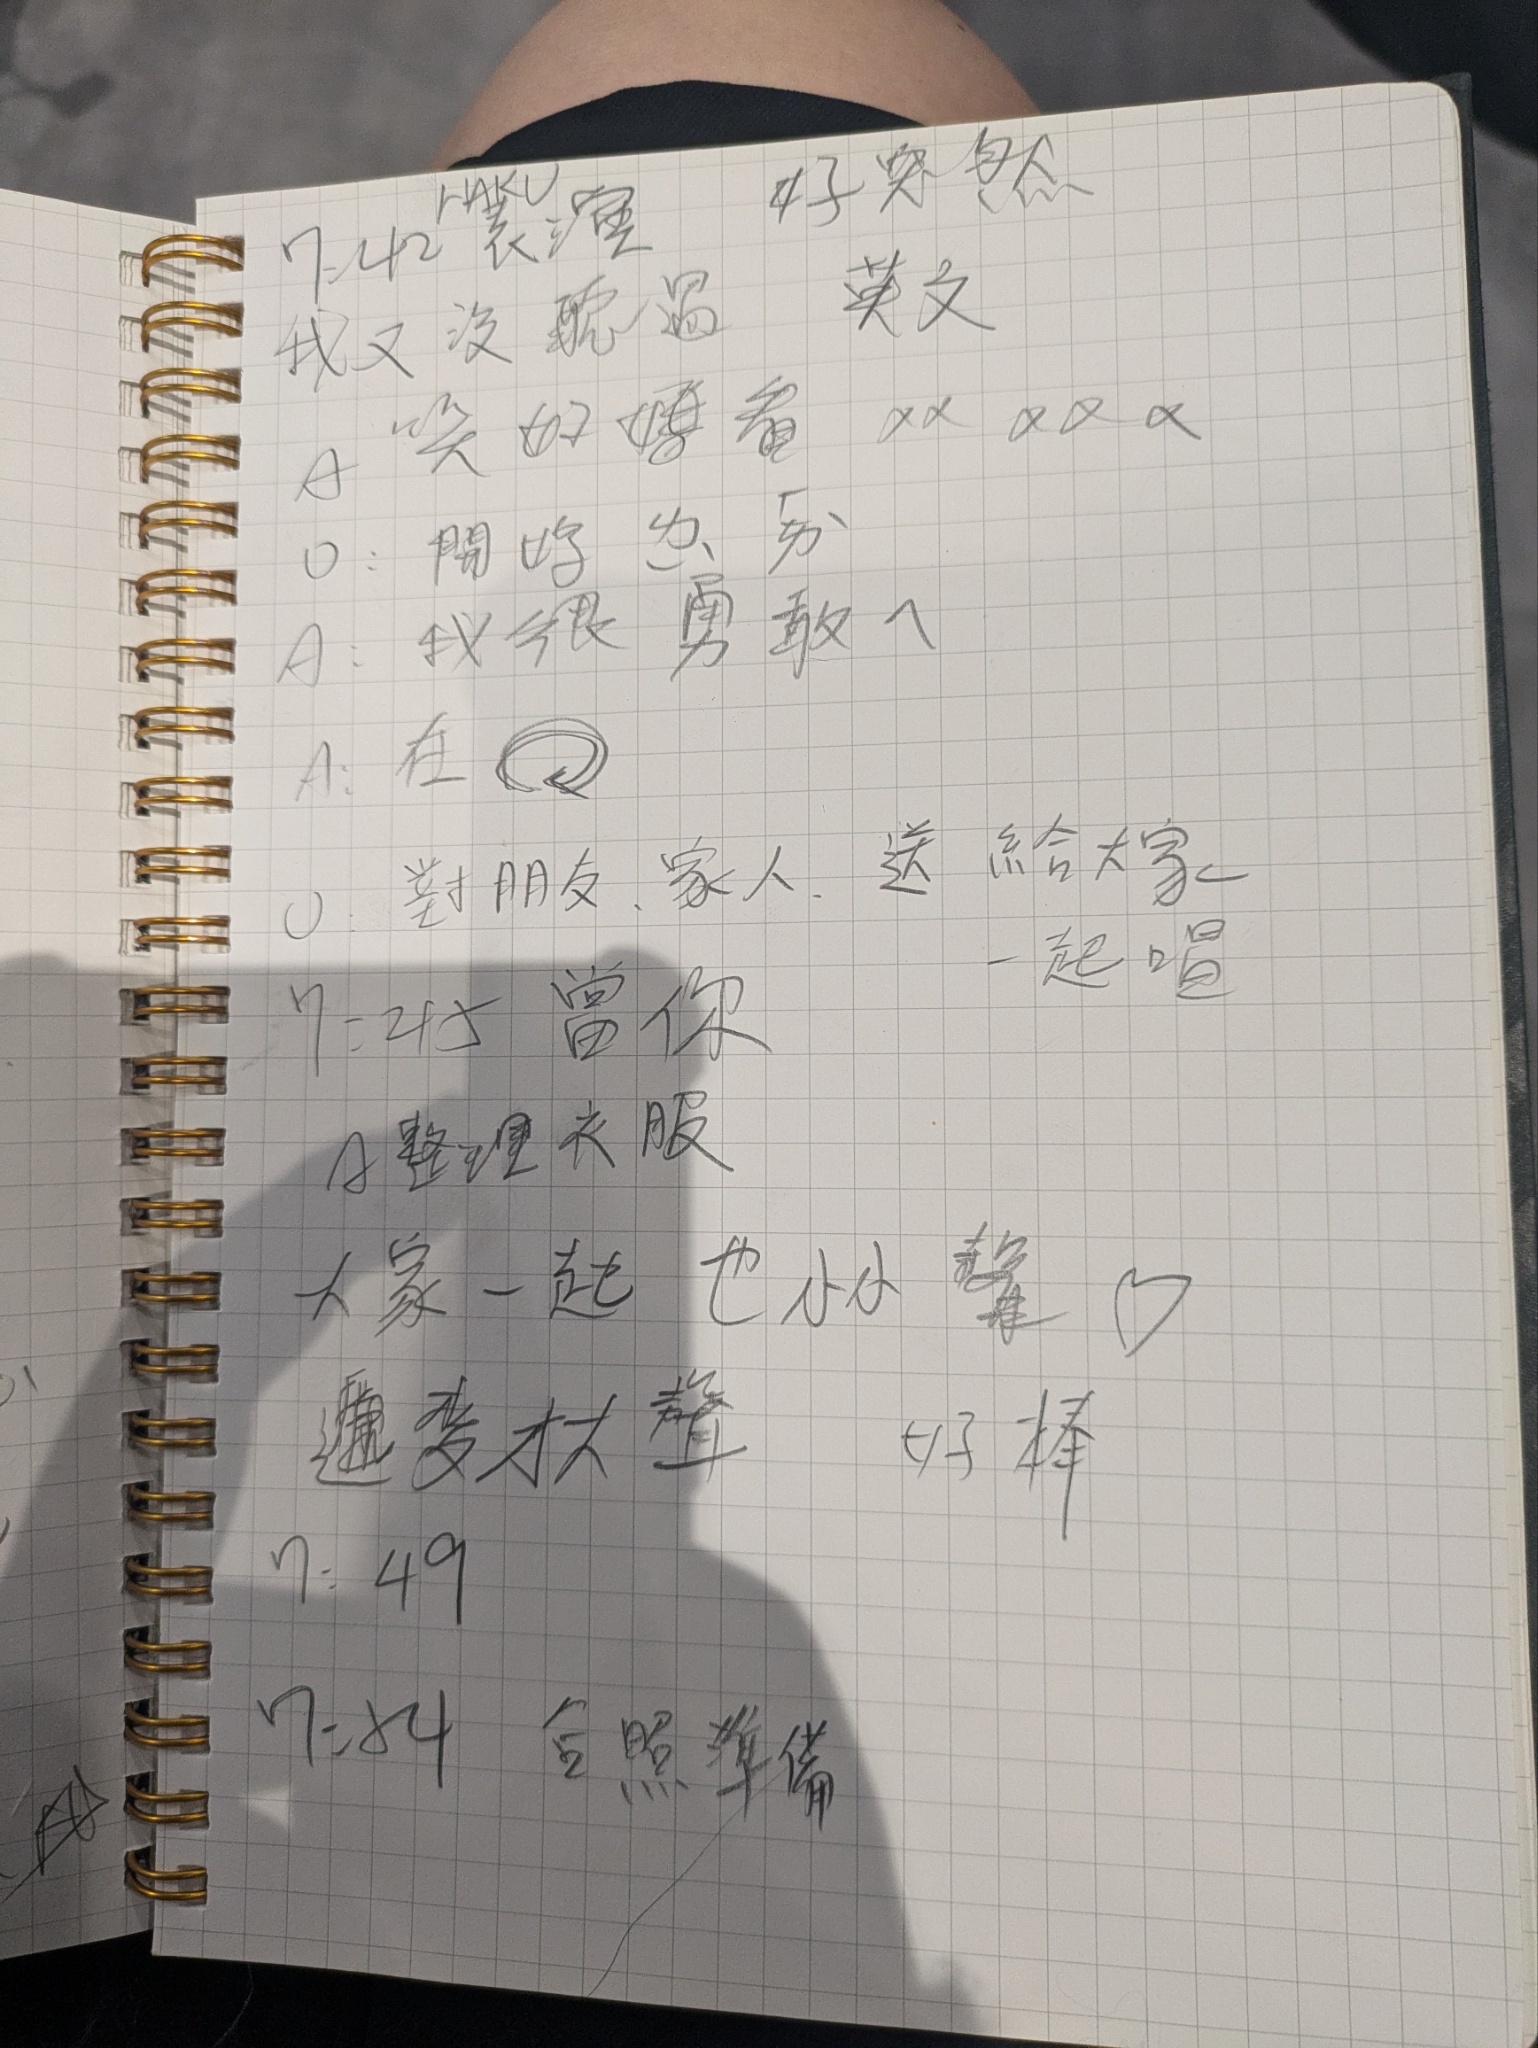 7:42 HAKU 表演 好突然
我又沒聽過 英文
A 笑好好看 xx xxx
O: 開好
A: 我很勇敢
A: 在
O: 對朋友、家人、送給大家
一起唱
7:45 當你
A 整理衣服
大家一起也小小聲♡
變大聲 好棒
7:49
7:54 合照準備